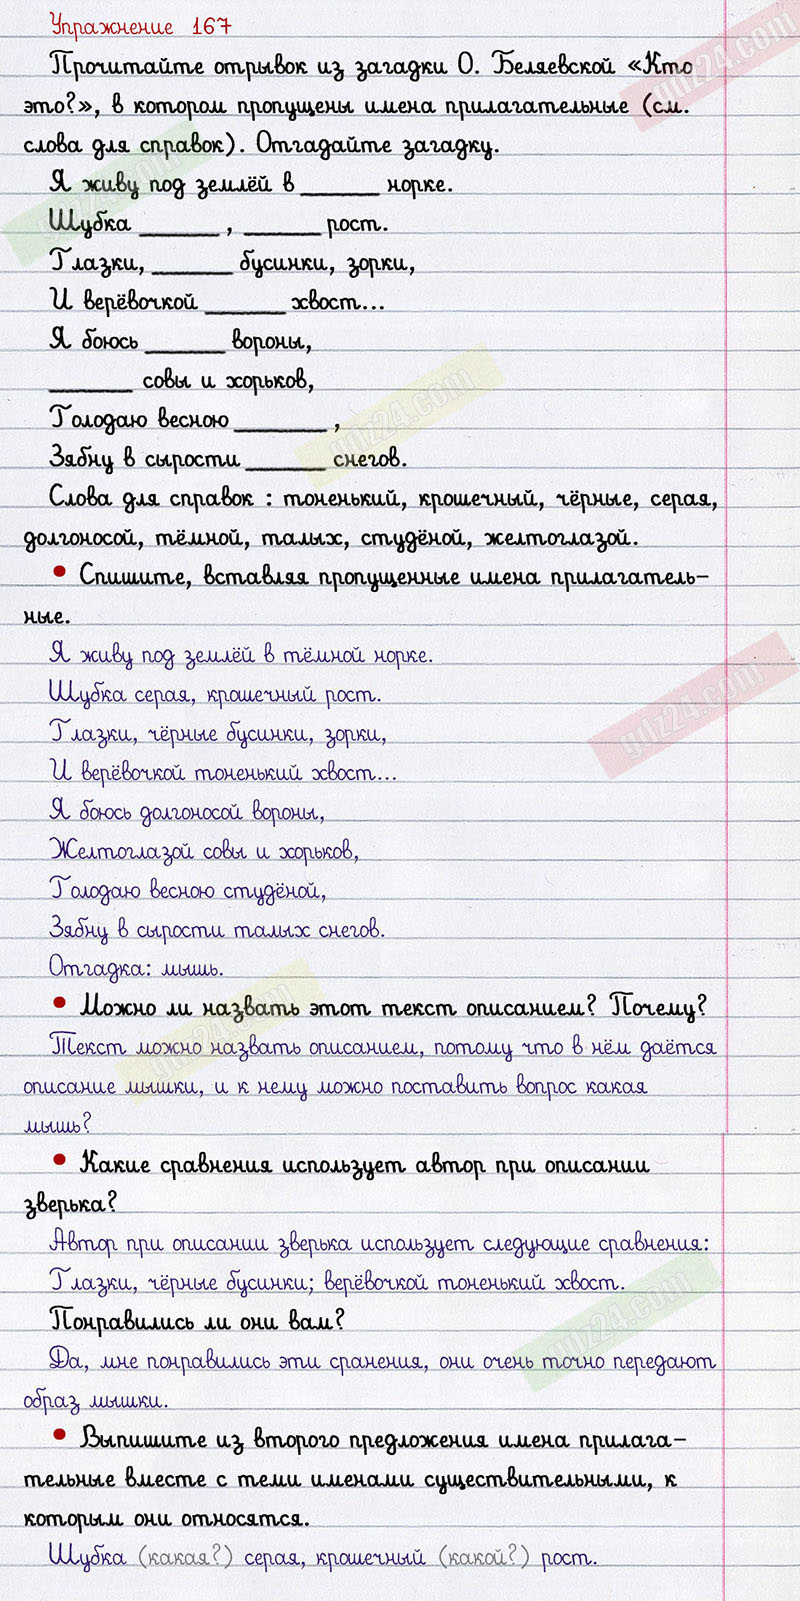 Упражнение 167
Прочитайте отрывок из загадки О. Беляевской «Кто
это?», в котором пропущены имена прилагательные (см.
слова для справок). Отгадайте загадку.
Я живу под землёй в ______ норке.
Шубка ______ , ______ рост.
Глазки, ______ бусинки, зорки,
И верёвочкой ______ хвост...
Я боюсь ______ вороны,
______ совы и хорьков,
Голодаю весною ______ ,
Зябну в сырости ______ снегов.
Слова для справок : тоненький, крошечный, чёрные, серая,
долгоносой, тёмной, талых, студёной, желтоглазой.
• Спишите, вставляя пропущенные имена прилагатель-
ные.
Я живу под землёй в тёмной норке.
Шубка серая, крошечный рост.
Глазки, чёрные бусинки, зорки,
И верёвочкой тоненький хвост...
Я боюсь долгоносой вороны,
Желтоглазой совы и хорьков,
Голодаю весною студёной,
Зябну в сырости талых снегов.
Отгадка: мышь.
• Можно ли назвать этот текст описанием? Почему?
Текст можно назвать описанием, потому что в нём даётся
описание мышки, и к нему можно поставить вопрос какая
мышь?
• Какие сравнения использует автор при описании
зверька?
Автор при описании зверька использует следующие сравнения:
Глазки, чёрные бусинки; верёвочкой тоненький хвост.
Понравились ли они вам?
Да, мне понравились эти сранения, они очень точно передают
образ мышки.
• Выпишите из второго предложения имена прилага-
тельные вместе с теми именами существительными, к
которым они относятся.
Шубка (какая?) серая, крошечный (какой?) рост.
gdz24.com
gdz24.com
gdz24.com
gdz24.com
gdz24.com
gdz24.com